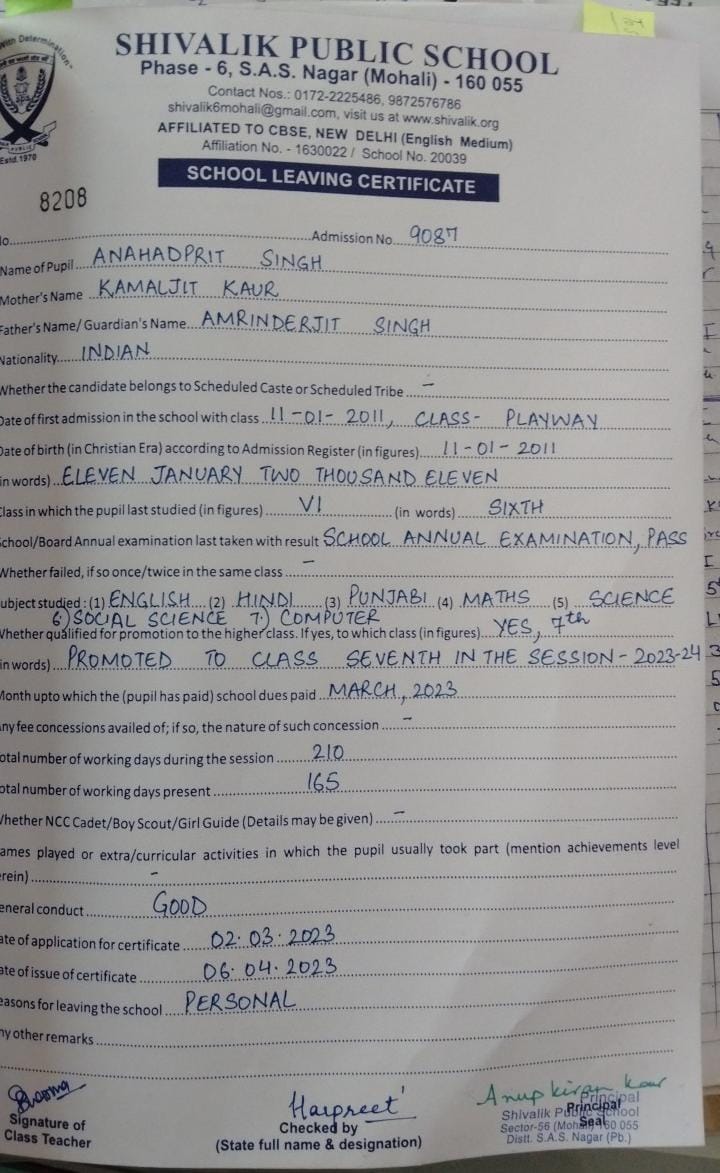 With Determination
Estd.1970
SHIVALIK PUBLIC SCHOOL
Phase - 6, S.A.S. Nagar (Mohali) - 160 055
Contact Nos.: 0172-2225486, 9872576786
shivalik6mohali@gmail.com, visit us at www.shivalik.org
AFFILIATED TO CBSE, NEW DELHI (English Medium)
Affiliation No. - 1630022 / School No. 20039
SCHOOL LEAVING CERTIFICATE
8208
lo. Admission No. 9087
Name of Pupil ANAHADPRIT SINGH
Mother's Name KAMALJIT KAUR
Father's Name/ Guardian's Name AMRINDERJIT SINGH
Nationality INDIAN
Whether the candidate belongs to Scheduled Caste or Scheduled Tribe –
Date of first admission in the school with class 11-01-2011, CLASS- PLAYWAY
Date of birth (in Christian Era) according to Admission Register (in figures) 11-01-2011
in words) ELEVEN JANUARY TWO THOUSAND ELEVEN
Class in which the pupil last studied (in figures) VI (in words) SIXTH
School/Board Annual examination last taken with result SCHOOL ANNUAL EXAMINATION, PASS
Whether failed, if so once/twice in the same class –
ubject studied : (1) ENGLISH (2) HINDI (3) PUNJABI (4) MATHS (5) SCIENCE
6) SOCIAL SCIENCE 7) COMPUTER
Whether qualified for promotion to the higher class. If yes, to which class (in figures) YES, 7th
in words) PROMOTED TO CLASS SEVENTH IN THE SESSION - 2023-24
Month upto which the (pupil has paid) school dues paid MARCH, 2023
Any fee concessions availed of; if so, the nature of such concession –
otal number of working days during the session 210
otal number of working days present 165
Whether NCC Cadet/Boy Scout/Girl Guide (Details may be given) –
ames played or extra/curricular activities in which the pupil usually took part (mention achievements level
erein) –
eneral conduct GOOD
ate of application for certificate 02.03.2023
ate of issue of certificate 06.04.2023
easons for leaving the school PERSONAL
ny other remarks
Sharma Harpreet Anup kiran kaur
Signature of
Class Teacher
Checked by
(State full name & designation)
Principal
Seal
Principal
Shivalik Public School
Sector-56 (Mohali) 160 055
Distt. S.A.S. Nagar (Pb.)